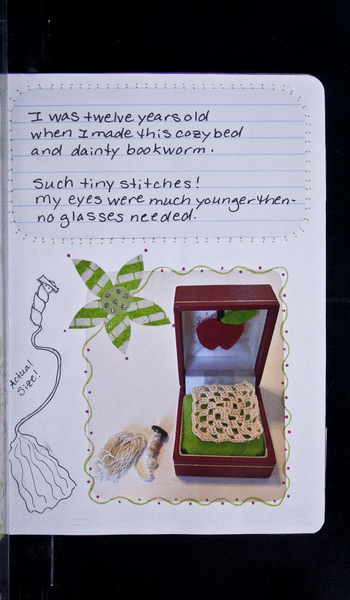 I was twelve years old
when I made this cozy bed
and dainty bookworm.
Such tiny stitches!
my eyes were much younger then-
no glasses needed.
Actual
Size!